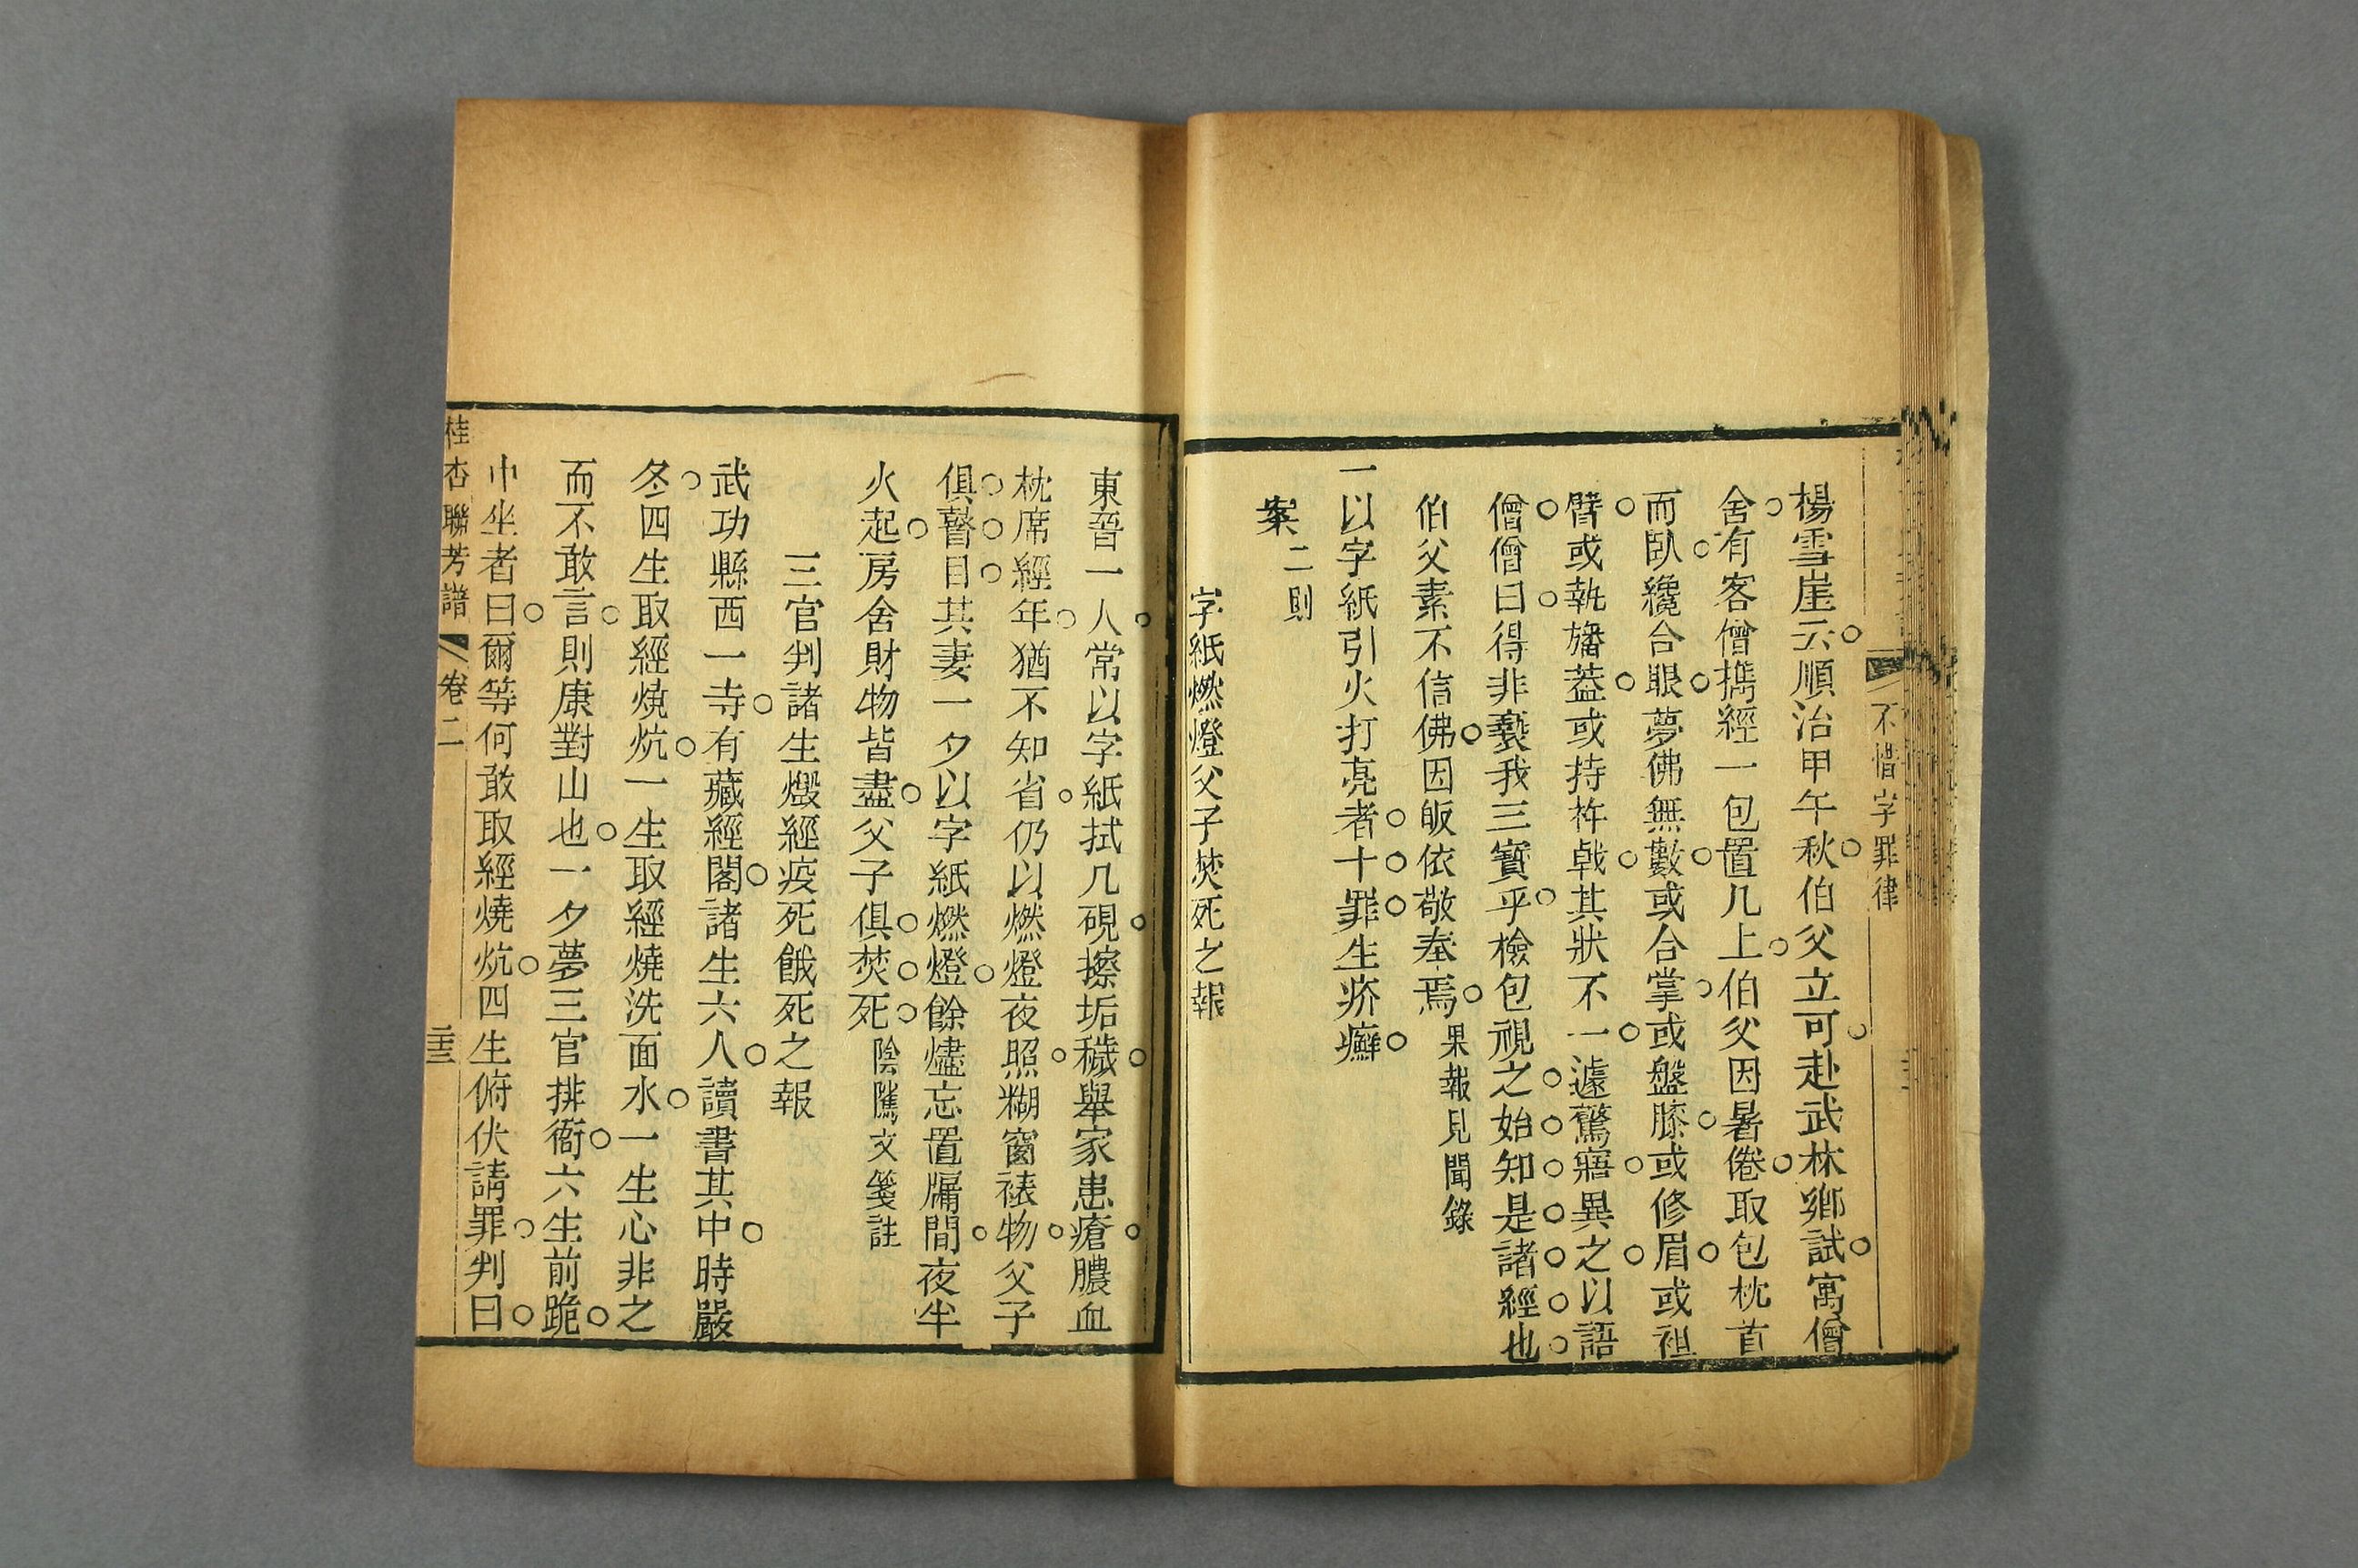 不惜字罪律
楊雪崖云順治甲午秋伯父立可赴武林鄉試寓僧
舍有客僧攜經一包置几上伯父因暑倦取包枕首
而臥纔合眼夢佛無數或合掌或盤膝或修眉或袒
臂或執旛蓋或持杵戟其狀不一遽驚寤異之以語
僧僧曰得非褻我三寶乎檢包視之始知是諸經也
伯父素不信佛因皈依敬奉焉果報見聞錄
一以字紙引火打亮者十罪生疥癬
案二則
字紙燃燈父子焚死之報
東晉一人常以字紙拭几硯擦垢穢舉家患瘡膿血
枕席經年猶不知省仍以燃燈夜照糊窗裱物父子
俱瞽目其妻一夕以字紙燃燈餘燼忘置牖間夜半
火起房舍財物皆盡父子俱焚死陰隲文箋註
三官判諸生燬經疫死餓死之報
武功縣西一寺有藏經閣諸生六人讀書其中時嚴
冬四生取經燒炕一生取經燒洗面水一生心非之
而不敢言則康對山也一夕夢三官排衙六生前跪
中坐者曰爾等何敢取經燒炕四生俯伏請罪判曰
桂杏聯芳譜 卷二 二十三